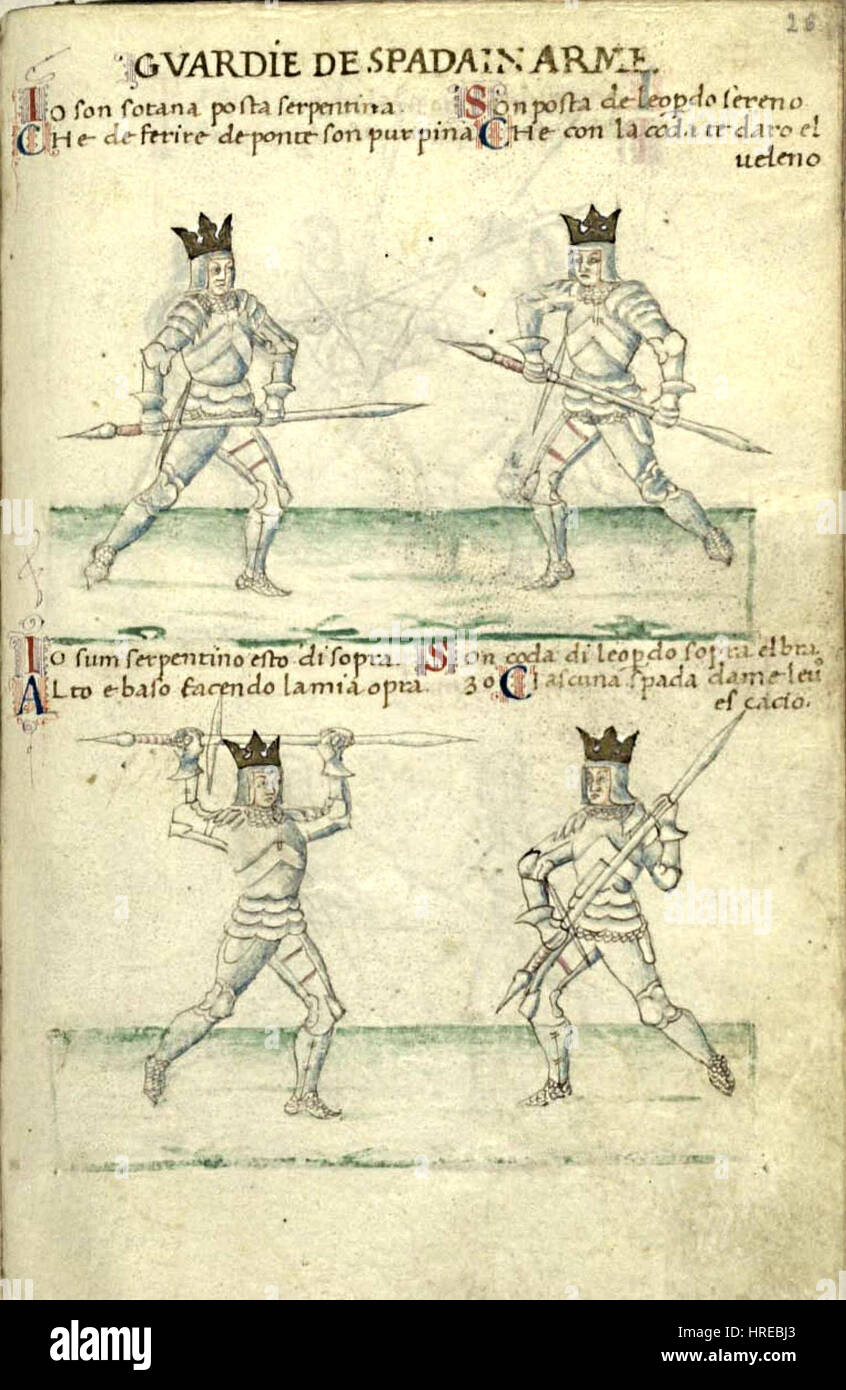 26
GVARDIE DE SPADA IN ARME.
Io son sotana posta serpentina.
CHe de ferire de ponte son pur pina
Son posta de leopdo sereno
CHe con la coda te daro el
ueleno
Io sum serpentino e sto di sopra.
ALto e baso facendo la mia opra.
Son coda di leopdo sopra el bra
zo Ciascuna spada da me
el cacio.
alamy
a
Image ID: HREBJ3
www.alamy.com